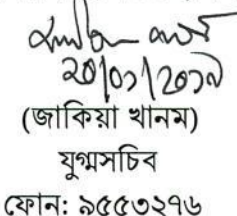 ২০/০১/২০১৯
(জাকিয়া খানম)
যুগ্মসচিব
ফোন: ৯৫৫৩২৭৬